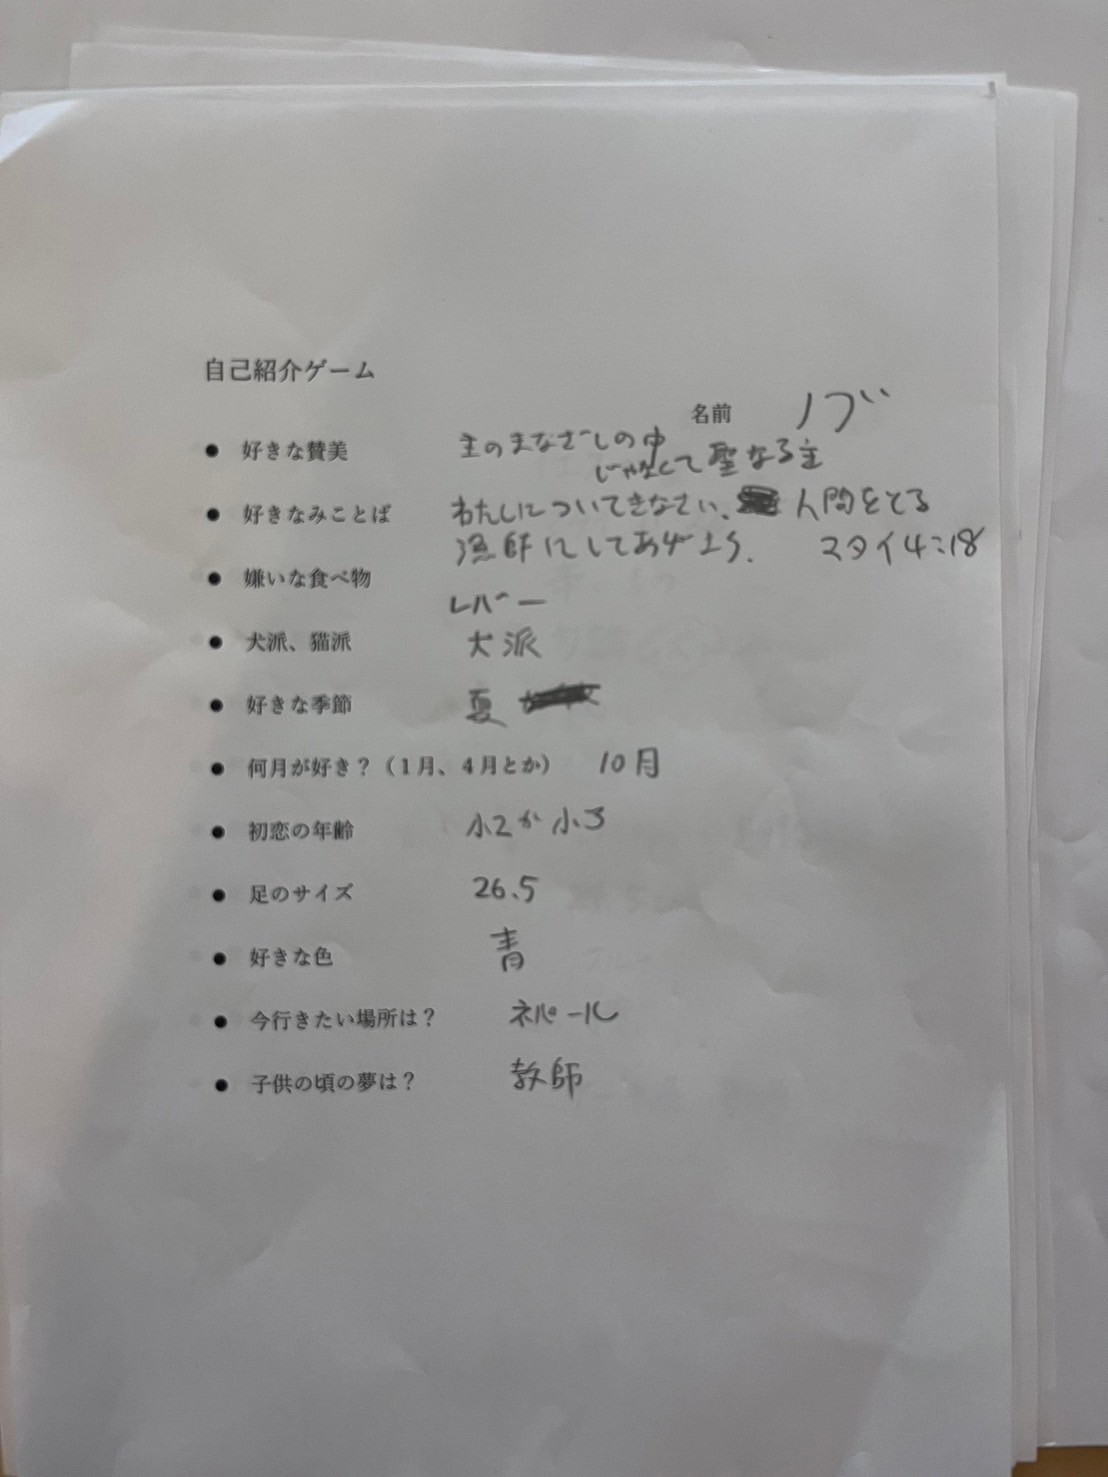 自己紹介ゲーム
名前 ノブ
● 好きな賛美 主のまなざしの中
じゃなくて 聖なる主
● 好きなみことば わたしについてきなさい、人間をとる
漁師にしてあげよう. マタイ4:18
● 嫌いな食べ物
レバー
● 犬派、猫派 犬派
● 好きな季節 夏
● 何月が好き？（1月、4月とか） 10月
● 初恋の年齢 小2か小3
● 足のサイズ 26.5
● 好きな色 青
● 今行きたい場所は？ ネパール
● 子供の頃の夢は？ 教師